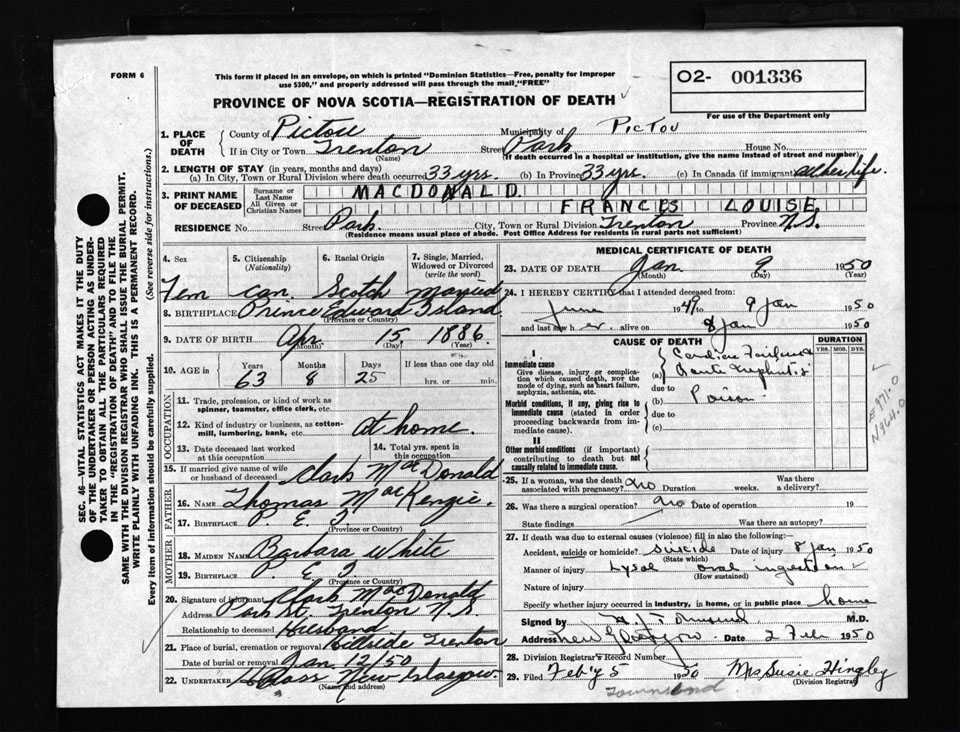 FORM 6
This form if placed in an envelope, on which is printed "Dominion Statistics—Free, penalty for improper
use $300," and properly addressed will pass through the mail "FREE"
O2- 001336
PROVINCE OF NOVA SCOTIA—REGISTRATION OF DEATH
For use of the Department only
1. PLACE OF DEATH
County of Pictou Municipality of PICTOU
If in City or Town Trenton Street Park House No.
(Name) (If death occurred in a hospital or institution, give the name instead of street and number)
2. LENGTH OF STAY (in years, months and days)
(a) In City, Town or Rural Division where death occurred 33 yrs. (b) In Province 33 yrs. (c) In Canada (if immigrant) all her life.
3. PRINT NAME OF DECEASED
Surname or Last Name MACDONALD.
All Given or Christian Names FRANCES LOUISE.
RESIDENCE No. Street Park. City, Town or Rural Division Trenton Province N.S.
(Residence means usual place of abode. Post Office Address for residents in rural parts not sufficient)
4. Sex 5. Citizenship (Nationality) 6. Racial Origin 7. Single, Married, Widowed or Divorced (write the word)
Fem Can. Scotch married
8. BIRTHPLACE Prince Edward Island
(Province or Country)
9. DATE OF BIRTH Apr. 15, 1886.
(Month) (Day) (Year)
10. AGE in Years Months Days If less than one day old
63 8 25 hrs. or min.
OCCUPATION
11. Trade, profession, or kind of work as spinner, teamster, office clerk, etc.
12. Kind of industry or business, as cotton-mill, lumbering, bank, etc. at home.
13. Date deceased last worked at this occupation
14. Total yrs. spent in this occupation
15. If married give name of wife or husband of deceased Clark MacDonald
FATHER
16. Name Thomas MacKenzie.
17. Birthplace P. E. I.
(Province or Country)
MOTHER
18. Maiden Name Barbara White
19. Birthplace P. E. I.
(Province or Country)
20. Signature of informant Clark MacDonald
Address Park St. Trenton N.S.
Relationship to deceased Husband
21. Place of burial, cremation or removal Hillside Trenton
Date of burial or removal Jan. 12/50
22. Undertaker Ross New Glasgow.
(Name and address)
MEDICAL CERTIFICATE OF DEATH
23. DATE OF DEATH Jan. 9 1950
(Month) (Day) (Year)
24. I HEREBY CERTIFY that I attended deceased from:
June 1949 to 9 Jan 1950
and last saw h er. alive on 8 Jan 1950
CAUSE OF DEATH DURATION
YRS. MOS. DYS.
I
Immediate cause
Give disease, injury or complication which caused death, NOT the mode of dying, such as heart failure, asphyxia, asthenia, etc.
Cardiac Failure
(a) Acute Nephritis
due to
(b) Poison.
due to
(c)
Morbid conditions, if any, giving rise to immediate cause (stated in order proceeding backwards from immediate cause).
II
Other morbid conditions (if important) contributing to death but not causally related to immediate cause.
E971.0
N964.0
25. If a woman, was the death associated with pregnancy? no Duration weeks. Was there a delivery?
26. Was there a surgical operation? no Date of operation 19
State findings Was there an autopsy?
27. If death was due to external causes (violence) fill in also the following:—
Accident, suicide or homicide? suicide Date of injury 8 Jan 1950
(State which)
Manner of injury Lysol oral ingestion
(How sustained)
Nature of injury
Specify whether injury occurred in industry, in home, or in public place home
Signed by Townsend M.D.
Address New Glasgow. Date 2 Feb 1950
28. Division Registrar's Record Number
29. Filed Feb'y 5 1950 Mrs Susie Hingley
(Division Registrar)
Townsend.
SEC. 46—VITAL STATISTICS ACT MAKES IT THE DUTY
OF THE UNDERTAKER OR PERSON ACTING AS UNDER-
TAKER TO OBTAIN ALL THE PARTICULARS REQUIRED
IN THE "REGISTRATION OF DEATH" AND TO FILE THE
SAME WITH THE DIVISION REGISTRAR WHO SHALL ISSUE THE BURIAL PERMIT.
WRITE PLAINLY WITH UNFADING INK. THIS IS A PERMANENT RECORD.
Every item of information should be carefully supplied. (See reverse side for instructions.)